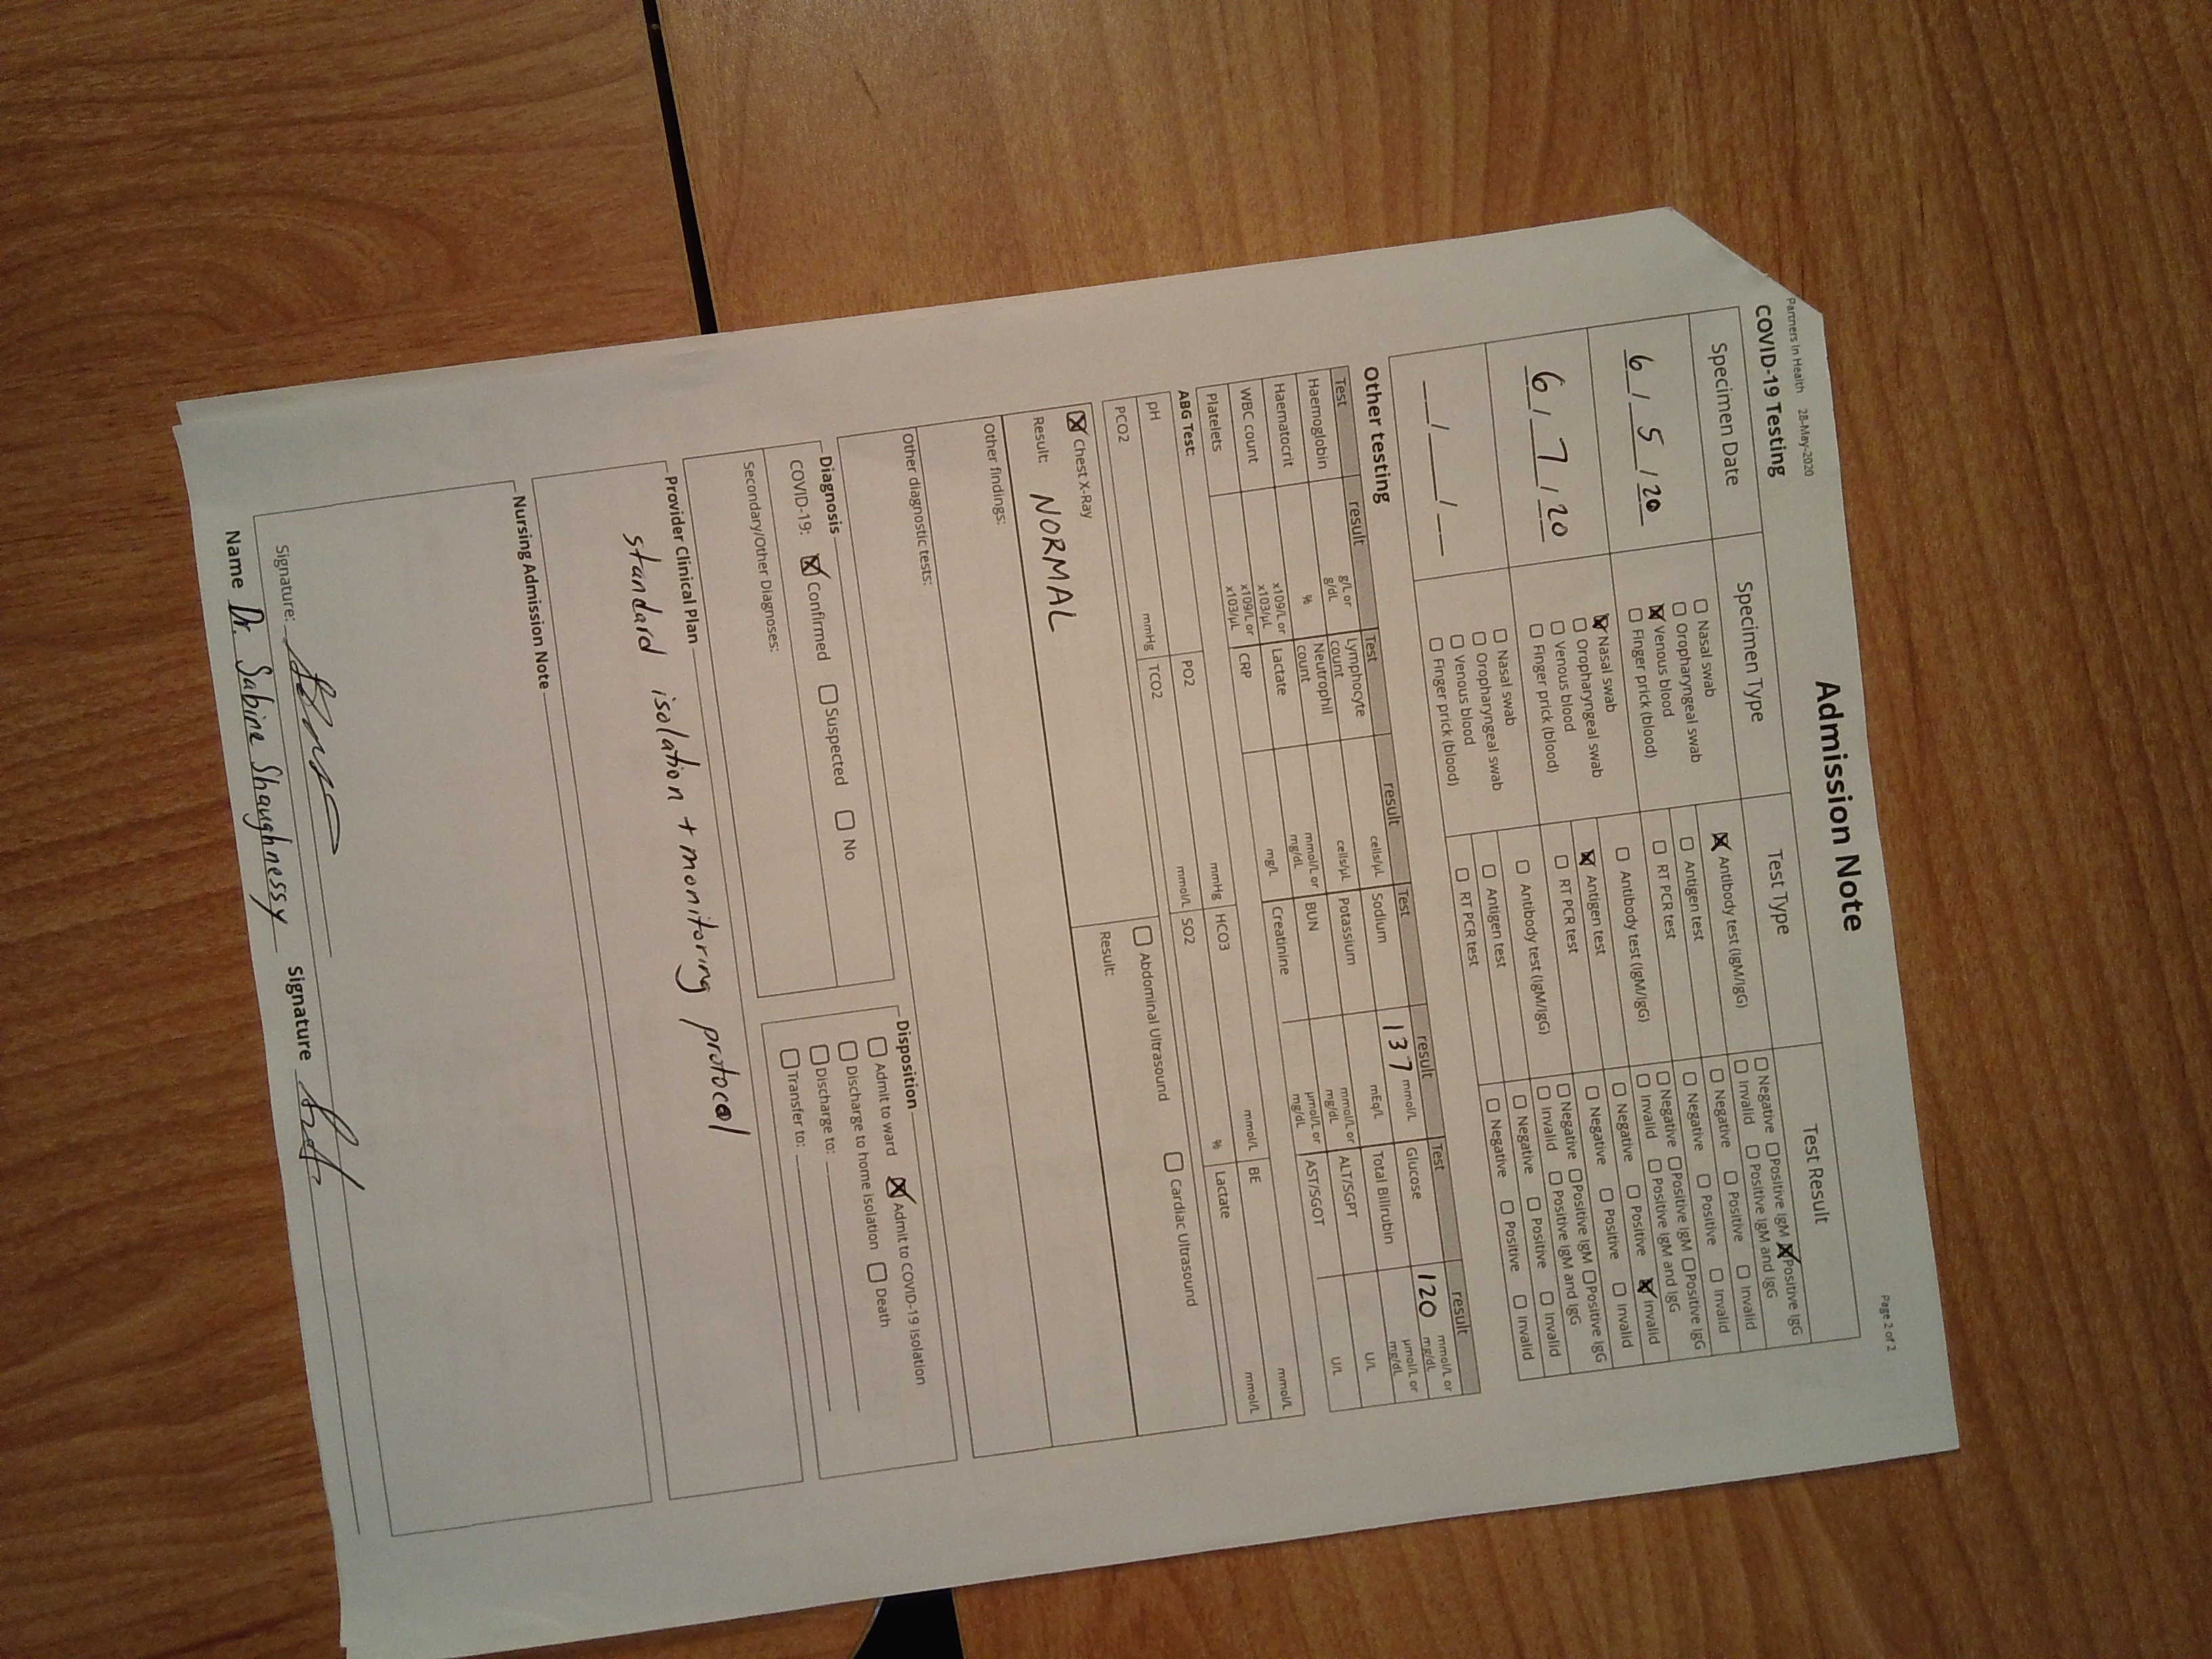 Partners In Health 28-May-2020
Page 2 of 2
Admission Note
COVID-19 Testing
Specimen Date Specimen Type Test Type Test Result
6 / 5 / 20
☐ Nasal swab
☐ Oropharyngeal swab
☒ Venous blood
☐ Finger prick (blood)
☒ Antibody test (IgM/IgG)
☐ Negative ☐ Positive IgM ☒ Positive IgG
☐ Invalid ☐ Positive IgM and IgG
☐ Antigen test ☐ Negative ☐ Positive ☐ Invalid
☐ RT PCR test ☐ Negative ☐ Positive ☐ Invalid
6 / 7 / 20
☒ Nasal swab
☐ Oropharyngeal swab
☐ Venous blood
☐ Finger prick (blood)
☐ Antibody test (IgM/IgG)
☐ Negative ☐ Positive IgM ☐ Positive IgG
☐ Invalid ☐ Positive IgM and IgG
☒ Antigen test ☐ Negative ☐ Positive ☒ Invalid
☐ RT PCR test ☐ Negative ☐ Positive ☐ Invalid
__/__/__
☐ Nasal swab
☐ Oropharyngeal swab
☐ Venous blood
☐ Finger prick (blood)
☐ Antibody test (IgM/IgG)
☐ Negative ☐ Positive IgM ☐ Positive IgG
☐ Invalid ☐ Positive IgM and IgG
☐ Antigen test ☐ Negative ☐ Positive ☐ Invalid
☐ RT PCR test ☐ Negative ☐ Positive ☐ Invalid
Other testing
Test result Test result Test result Test result
Haemoglobin g/L or g/dL Lymphocyte count cells/µL Sodium 137 mmol/L Glucose 120 mmol/L or mg/dL
Haematocrit % Neutrophil count cells/µL Potassium mEq/L Total Bilirubin µmol/L or mg/dL
WBC count x109/L or x103/µL Lactate mmol/L or mg/dL BUN mmol/L or mg/dL ALT/SGPT U/L
Platelets x109/L or x103/µL CRP mg/L Creatinine µmol/L or mg/dL AST/SGOT U/L
ABG Test:
pH PO2 mmHg HCO3 mmol/L BE mmol/L
PCO2 mmHg TCO2 mmol/L SO2 % Lactate mmol/L
☒ Chest X-Ray ☐ Abdominal Ultrasound ☐ Cardiac Ultrasound
Result: NORMAL Result:
Other findings:
Other diagnostic tests:
Diagnosis
COVID-19: ☒ Confirmed ☐ Suspected ☐ No
Secondary/Other Diagnoses:
Disposition
☐ Admit to ward ☒ Admit to COVID-19 Isolation
☐ Discharge to home isolation ☐ Death
☐ Discharge to:
☐ Transfer to:
Provider Clinical Plan
standard isolation + monitoring protocol
Nursing Admission Note
Signature:
Name Dr. Sabine Shaughnessy Signature